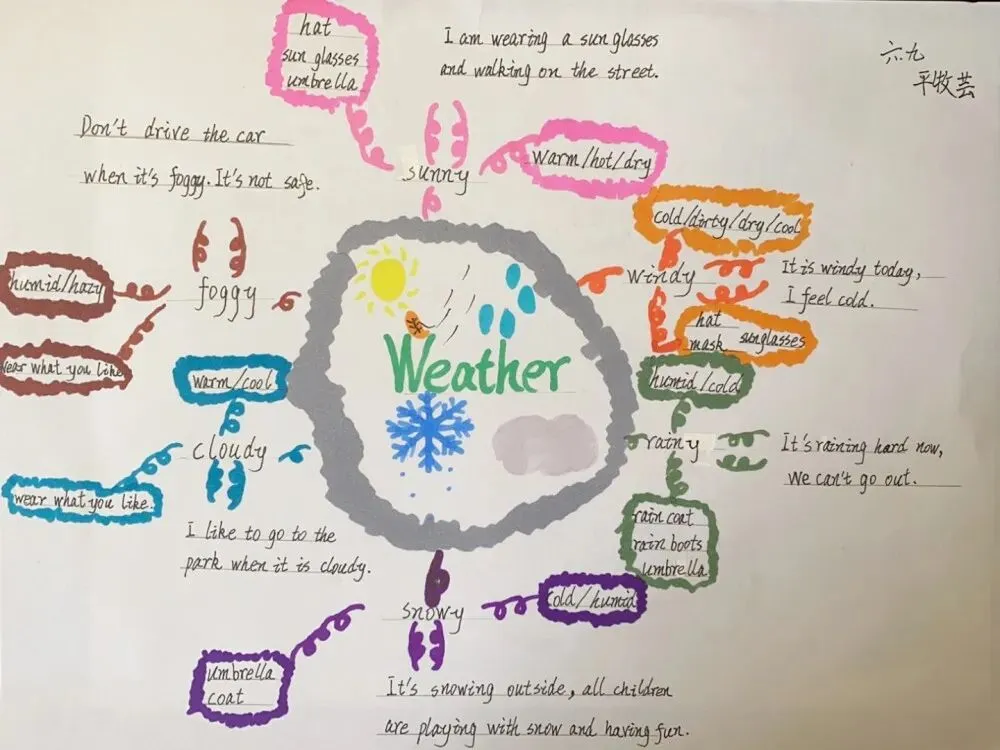 hat
sun glasses
umbrella
I am wearing a sunglasses
and walking on the street.
六.九
平牧芸
sunny
warm/hot/dry
Don't drive the car
when it's foggy. It's not safe.
humid/hazy
foggy
wear what you like
cold/dirty/dry/cool
windy
It is windy today,
I feel cold.
hat
mask sunglasses
Weather
warm/cool
cloudy
wear what you like.
I like to go to the
park when it is cloudy.
humid/cold
rainy
It's raining hard now,
We can't go out.
rain coat
rain boots
umbrella
snowy
cold/humid
umbrella
coat
It's snowing outside, all children
are playing with snow and having fun.